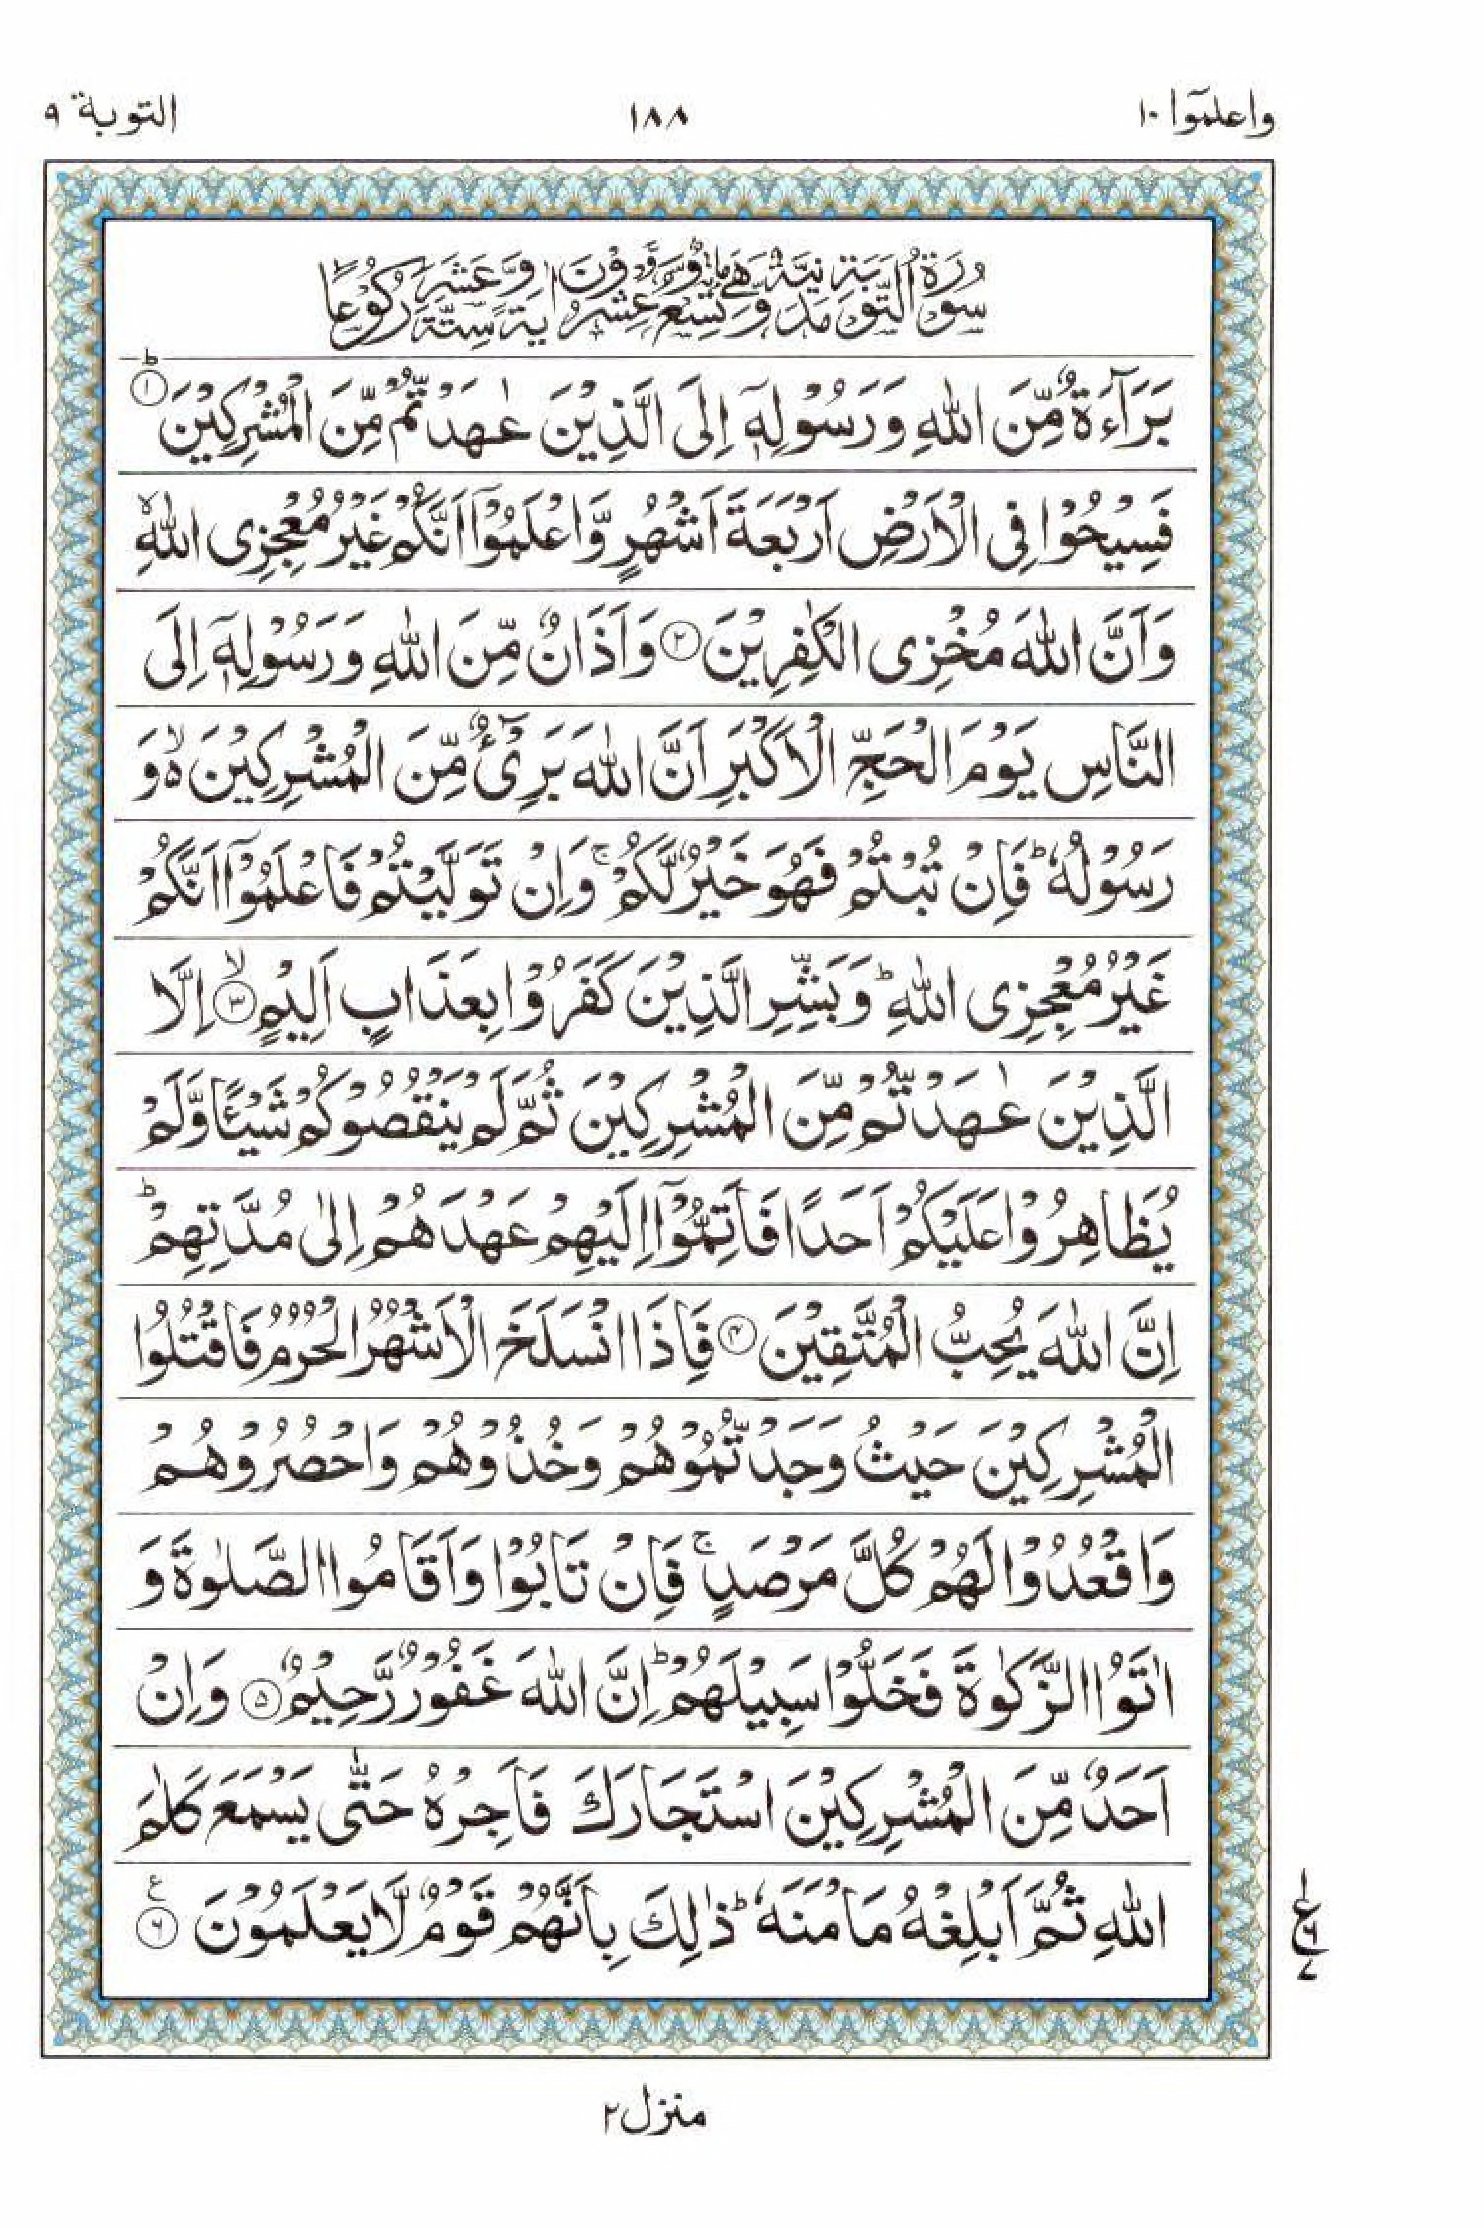 واعلموٓا ١٠
١٨٨
التوبة ٩
سُوْرَةُ التَّوْبَةِ مَدَنِيَّةٌ وَّهِيَ مِائَةٌ وَّتِسْعٌ وَّعِشْرُوْنَ اٰيَةً وَّسِتَّةَ عَشَرَ رُكُوْعًا
بَرَآءَةٌ مِّنَ اللّٰهِ وَرَسُوْلِهٖۤ اِلَى الَّذِيْنَ عٰهَدْتُّمْ مِّنَ الْمُشْرِكِيْنَ ؕ﴿۱﴾
فَسِيْحُوْا فِى الْاَرْضِ اَرْبَعَةَ اَشْهُرٍ وَّاعْلَمُوْۤا اَنَّكُمْ غَيْرُ مُعْجِزِى اللّٰهِ ۙ
وَاَنَّ اللّٰهَ مُخْزِى الْكٰفِرِيْنَ ﴿۲﴾ وَاَذَانٌ مِّنَ اللّٰهِ وَرَسُوْلِهٖۤ اِلَى
النَّاسِ يَوْمَ الْحَجِّ الْاَكْبَرِ اَنَّ اللّٰهَ بَرِیْٓءٌ مِّنَ الْمُشْرِكِيْنَ ۙ۬ وَ
رَسُوْلُهٗ ؕ فَاِنْ تُبْتُمْ فَهُوَ خَيْرٌ لَّكُمْ ۚ وَاِنْ تَوَلَّيْتُمْ فَاعْلَمُوْۤا اَنَّكُمْ
غَيْرُ مُعْجِزِى اللّٰهِ ؕ وَبَشِّرِ الَّذِيْنَ كَفَرُوْا بِعَذَابٍ اَلِيْمٍ ۙ﴿۳﴾ اِلَّا
الَّذِيْنَ عٰهَدْتُّمْ مِّنَ الْمُشْرِكِيْنَ ثُمَّ لَمْ يَنْقُصُوْكُمْ شَيْـًٔا وَّلَمْ
يُظَاهِرُوْا عَلَيْكُمْ اَحَدًا فَاَتِمُّوْۤا اِلَيْهِمْ عَهْدَهُمْ اِلٰى مُدَّتِهِمْ ؕ
اِنَّ اللّٰهَ يُحِبُّ الْمُتَّقِيْنَ ﴿۴﴾ فَاِذَا انْسَلَخَ الْاَشْهُرُ الْحُرُمُ فَاقْتُلُوا
الْمُشْرِكِيْنَ حَيْثُ وَجَدْتُّمُوْهُمْ وَخُذُوْهُمْ وَاحْصُرُوْهُمْ
وَاقْعُدُوْا لَهُمْ كُلَّ مَرْصَدٍ ۚ فَاِنْ تَابُوْا وَاَقَامُوا الصَّلٰوةَ وَ
اٰتَوُا الزَّكٰوةَ فَخَلُّوْا سَبِيْلَهُمْ ؕ اِنَّ اللّٰهَ غَفُوْرٌ رَّحِيْمٌ ﴿۵﴾ وَاِنْ
اَحَدٌ مِّنَ الْمُشْرِكِيْنَ اسْتَجَارَكَ فَاَجِرْهُ حَتّٰى يَسْمَعَ كَلٰمَ
اللّٰهِ ثُمَّ اَبْلِغْهُ مَاْمَنَهٗ ؕ ذٰلِكَ بِاَنَّهُمْ قَوْمٌ لَّا يَعْلَمُوْنَ ﴿۶﴾ ع
١
ع ٦
٧
منزل ٢